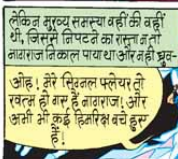 लेकिन मुख्य समस्या वहीं की वहीं
थी, जिससे निपटने का रास्ता न तो
नागराज निकाल पाया था और न ही ध्रुव-
ओह! मेरे सिग्नल फ्लेयर तो
खत्म हो गए हैं नागराज! और
अभी भी कई हिमरिक्ष बचे हुए
हैं!